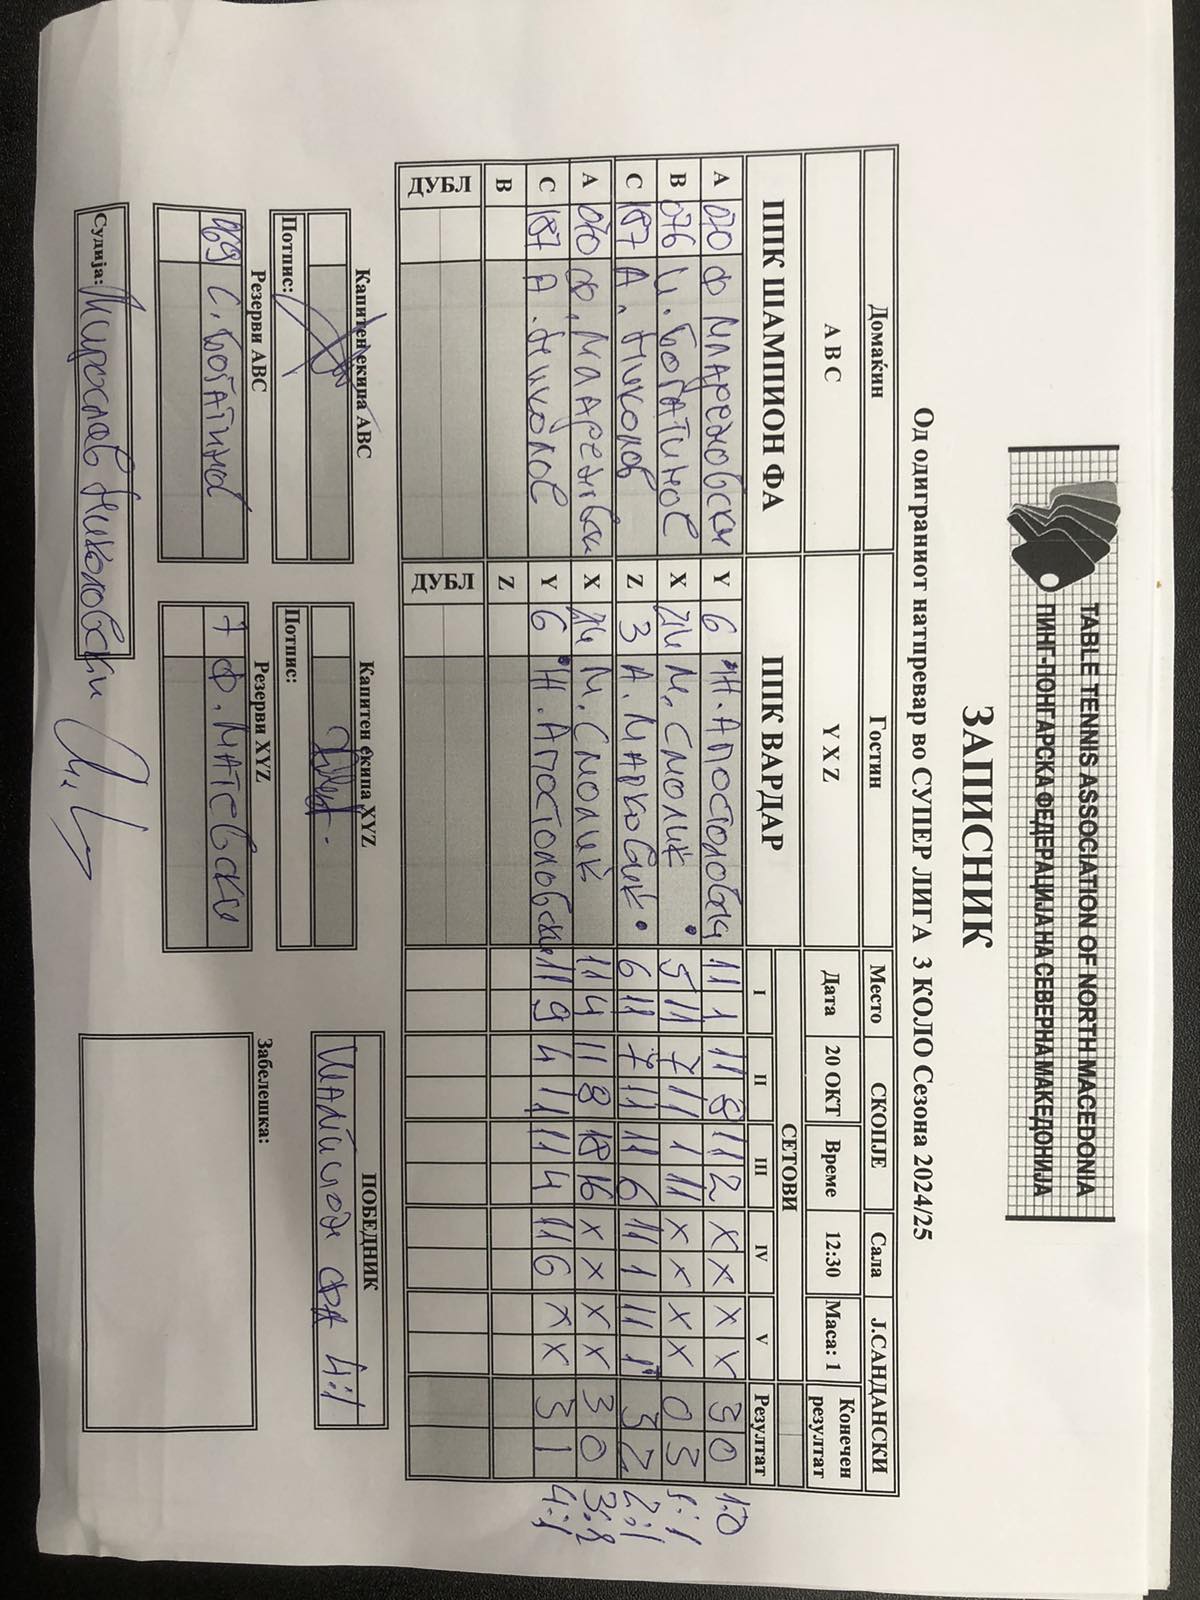 TABLE TENNIS ASSOCIATION OF NORTH MACEDONIA
ПИНГ-ПОНГАРСКА ФЕДЕРАЦИЈА НА СЕВЕРНА МАКЕДОНИЈА
ЗАПИСНИК
Од одиграниот натпревар во СУПЕР ЛИГА 3 КОЛО Сезона 2024/25
Домаќин Гостин Место СКОПЈЕ Сала Ј.САНДАНСКИ
A B C Y X Z Дата 20 ОКТ Време 12:30 Маса: 1 Конечен резултат
ППК ШАМПИОН ФА ППК ВАРДАР СЕТОВИ
I II III IV V Резултат
A 070 Ф МЛАДЕНОВСКИ Y 6 Ж. АПОСТОЛОВСКИ 11 1 11 8 11 2 X X X X 3 0 1:0
B 076 И. БОГАТИНОВ X 24 М. СМОЛИК 5 11 7 11 1 11 X X X X 0 3 1:1
C 187 А. НИКОЛОВ Z 3 А. МАРКОВИЌ 6 11 7 11 11 6 11 1 11 3 2 2:1
A 070 Ф. МЛАДЕНОВСКИ X 24 М. СМОЛИК 11 4 11 8 18 16 X X X X 3 0 3:1
C 187 А. НИКОЛОВ Y 6 Ж. АПОСТОЛОВСКИ 11 9 4 11 11 4 11 6 X X 3 1 4:1
B Z
ДУБЛ ДУБЛ
Капитен екипа ABC Капитен екипа XYZ ПОБЕДНИК
ШАМПИОН ФА 4:1
Потпис: Потпис:
Резерви ABC Резерви XYZ Забелешка:
969 С. БОГАТИНОВ 7 Ф. МАТЕВСКИ
Судија: Мирослав Николовски